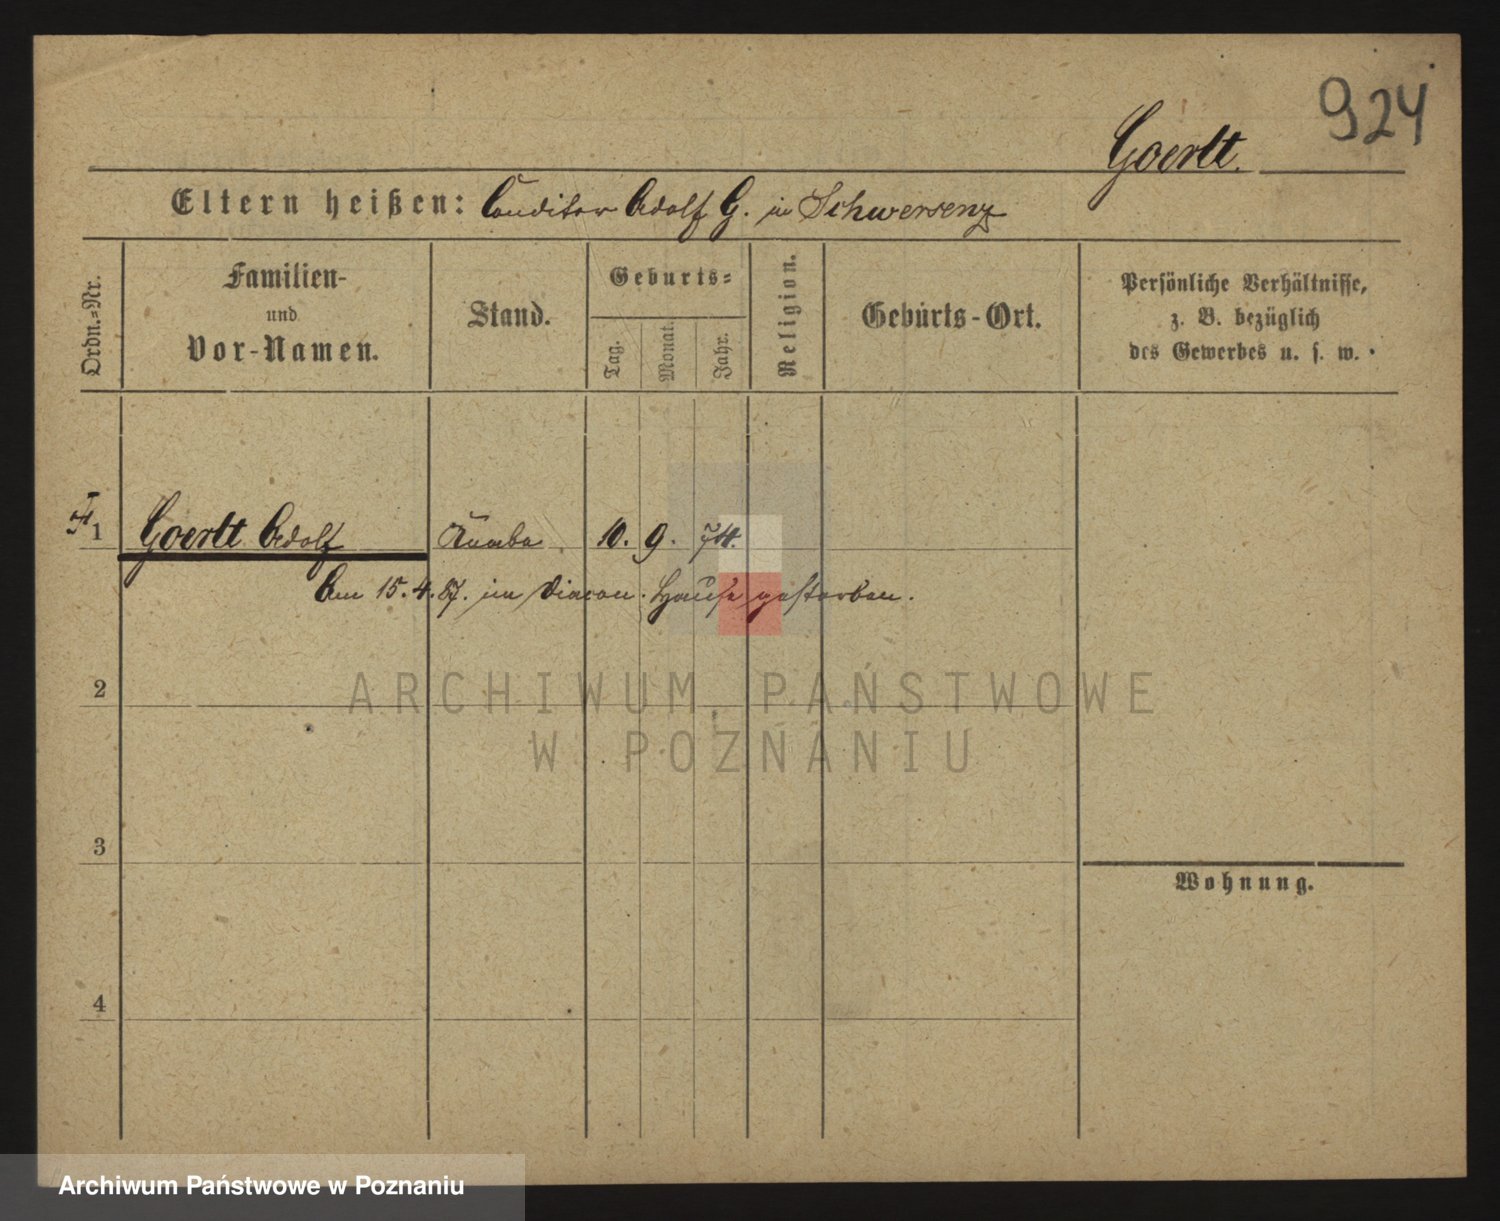 924
Goerlt.
Eltern heißen: Conditor Adolf G. in Schwersenz
Ordn.-Nr.
Familien-
und
Vor-Namen.
Stand.
Geburts-
Tag.
Monat.
Jahr.
Religion.
Geburts-Ort.
Persönliche Verhältnisse,
z. B. bezüglich
des Gewerbes u. s. w.
1 Goerlt Adolf Knabe 10. 9. 74.
Am 15.4.87. im Diacon. Hause gestorben.
2
ARCHIWUM PAŃSTWOWE
W POZNANIU
3
Wohnung.
4
Archiwum Państwowe w Poznaniu